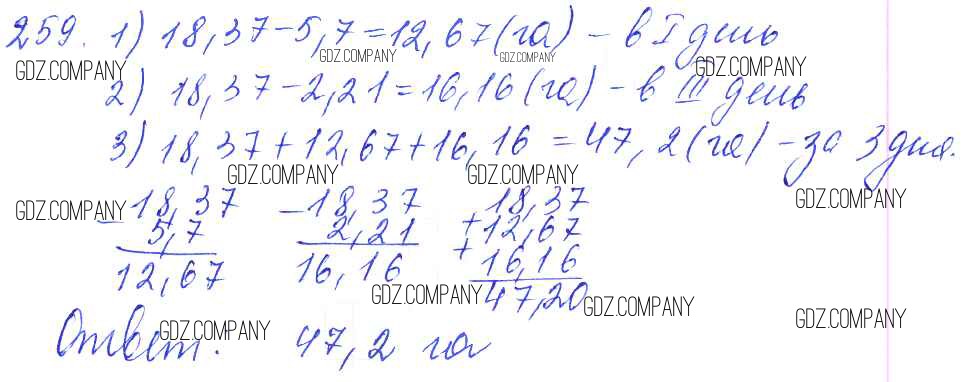 259. 1) 18,37-5,7=12,67(га) - в I день
GDZ.COMPANY GDZ.COMPANY GDZ.COMPANY GDZ.COMPANY
2) 18,37-2,21=16,16(га) - в III день
3) 18,37+12,67+16,16=47,2(га) - за 3 дня.
GDZ.COMPANY GDZ.COMPANY
GDZ.COMPANY -18,37 -18,37 18,37 GDZ.COMPANY
5,7 2,21 +12,67
12,67 16,16 +16,16
GDZ.COMPANY 47,20 GDZ.COMPANY GDZ.COMPANY
Ответ: GDZ.COMPANY 47,2 га